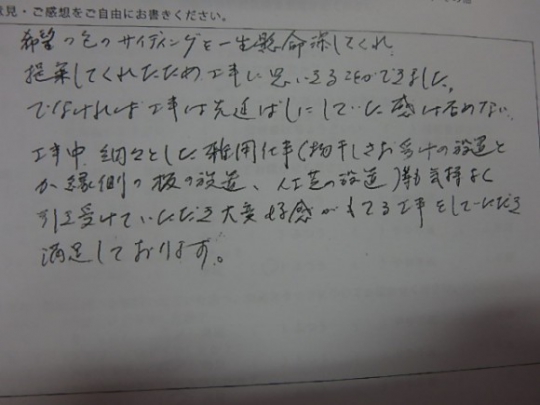 意見・ご感想をご自由にお書きください。
希望の色のサイディングを一生懸命探してくれ
提案してくれたため工事に思いきることができました。
でなければ工事は先延ばしにしていた感は否めない。
工事中 細々とした雑用仕事(物干しさお受けの設置と
か縁側の板の設置、人工芝の設置)等も気持よく
引き受けていただき大変好感がもてる工事をしていただき
満足しております。